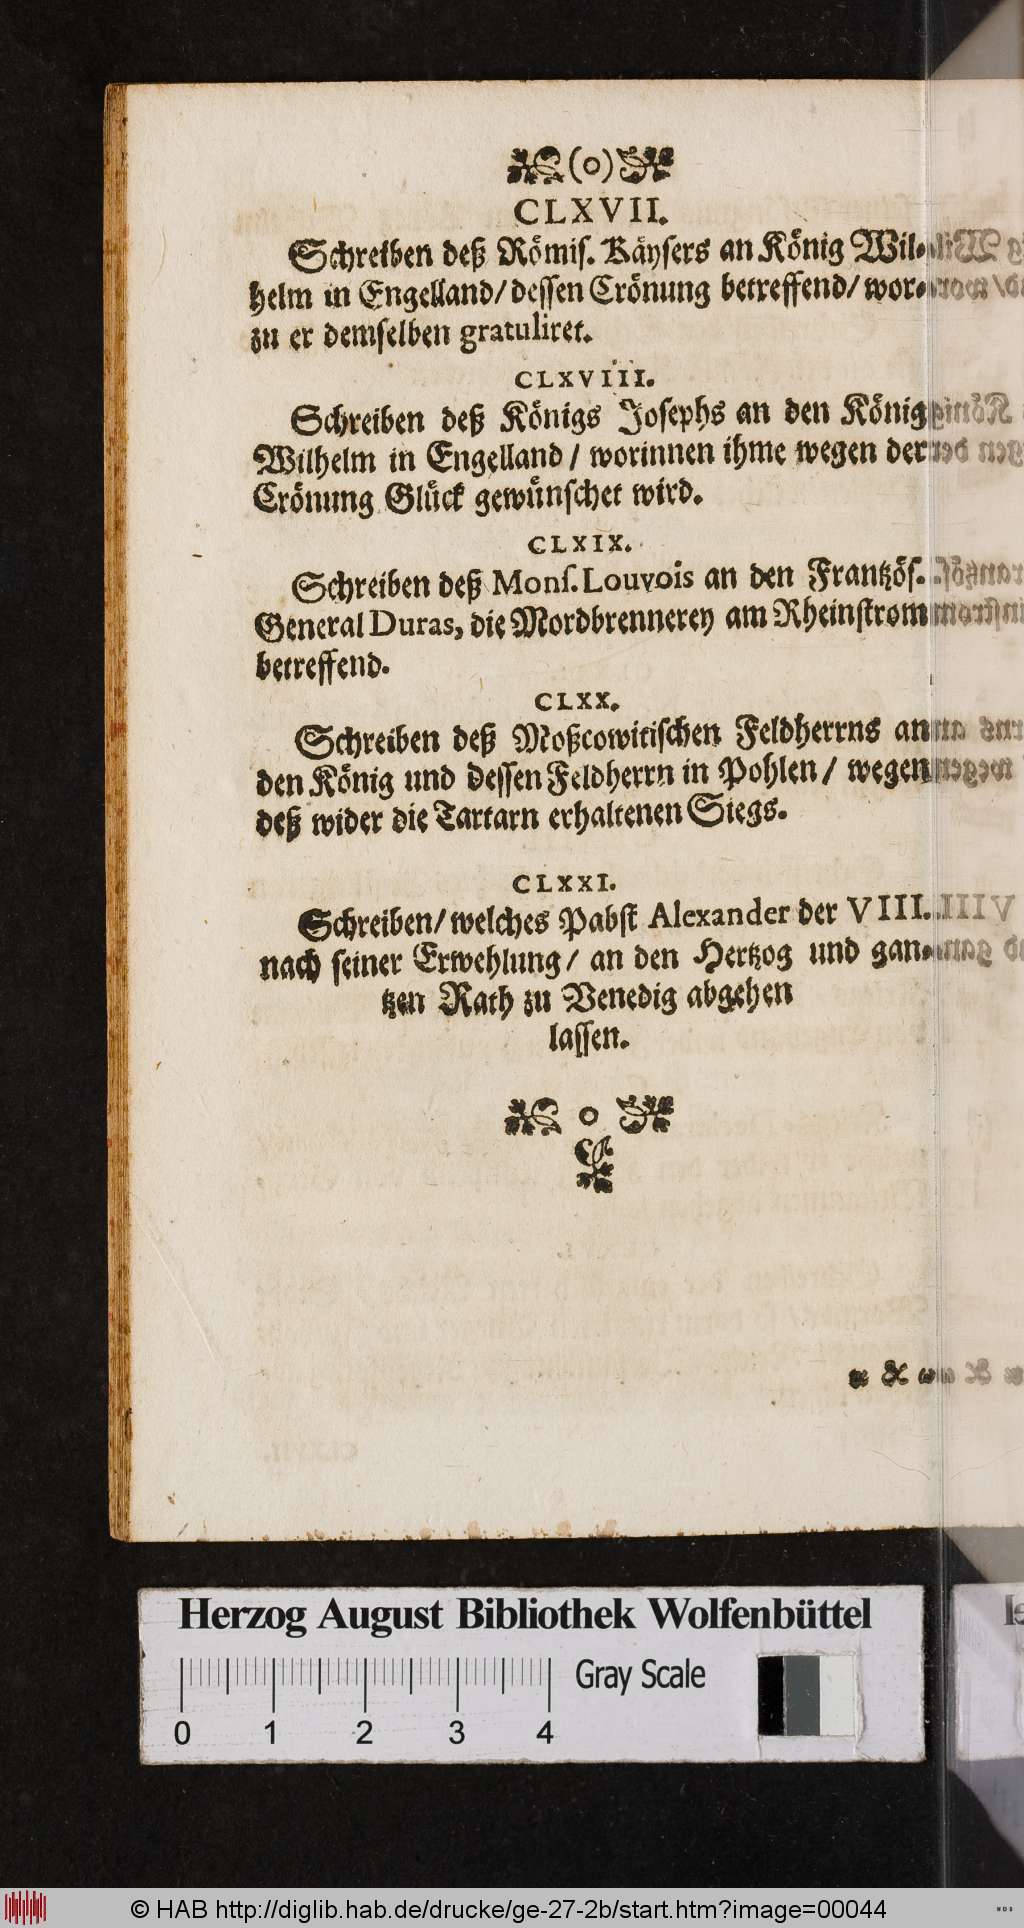 (o)
CLXVII.
Schreiben deß Römis. Käysers an König Wil-
helm in Engelland/ dessen Crönung betreffend/ wor-
zu er demselben gratuliret.
CLXVIII.
Schreiben deß Königs Josephs an den König
Wilhelm in Engelland / worinnen ihme wegen der
Crönung Glück gewünschet wird.
CLXIX.
Schreiben deß Monſ. Louvois an den Frantzös.
General Duras, die Mordbrennerey am Rheinstrom
betreffend.
CLXX.
Schreiben deß Moßcowitischen Feldherrns an
den König und dessen Feldherrn in Pohlen / wegen
deß wider die Tartarn erhaltenen Siegs.
CLXXI.
Schreiben/ welches Pabst Alexander der VIII.
nach seiner Erwehlung/ an den Hertzog und gan-
tzen Rath zu Venedig abgehen
lassen.
Herzog August Bibliothek Wolfenbüttel
Gray Scale
0 1 2 3 4
© HAB http://diglib.hab.de/drucke/ge-27-2b/start.htm?image=00044